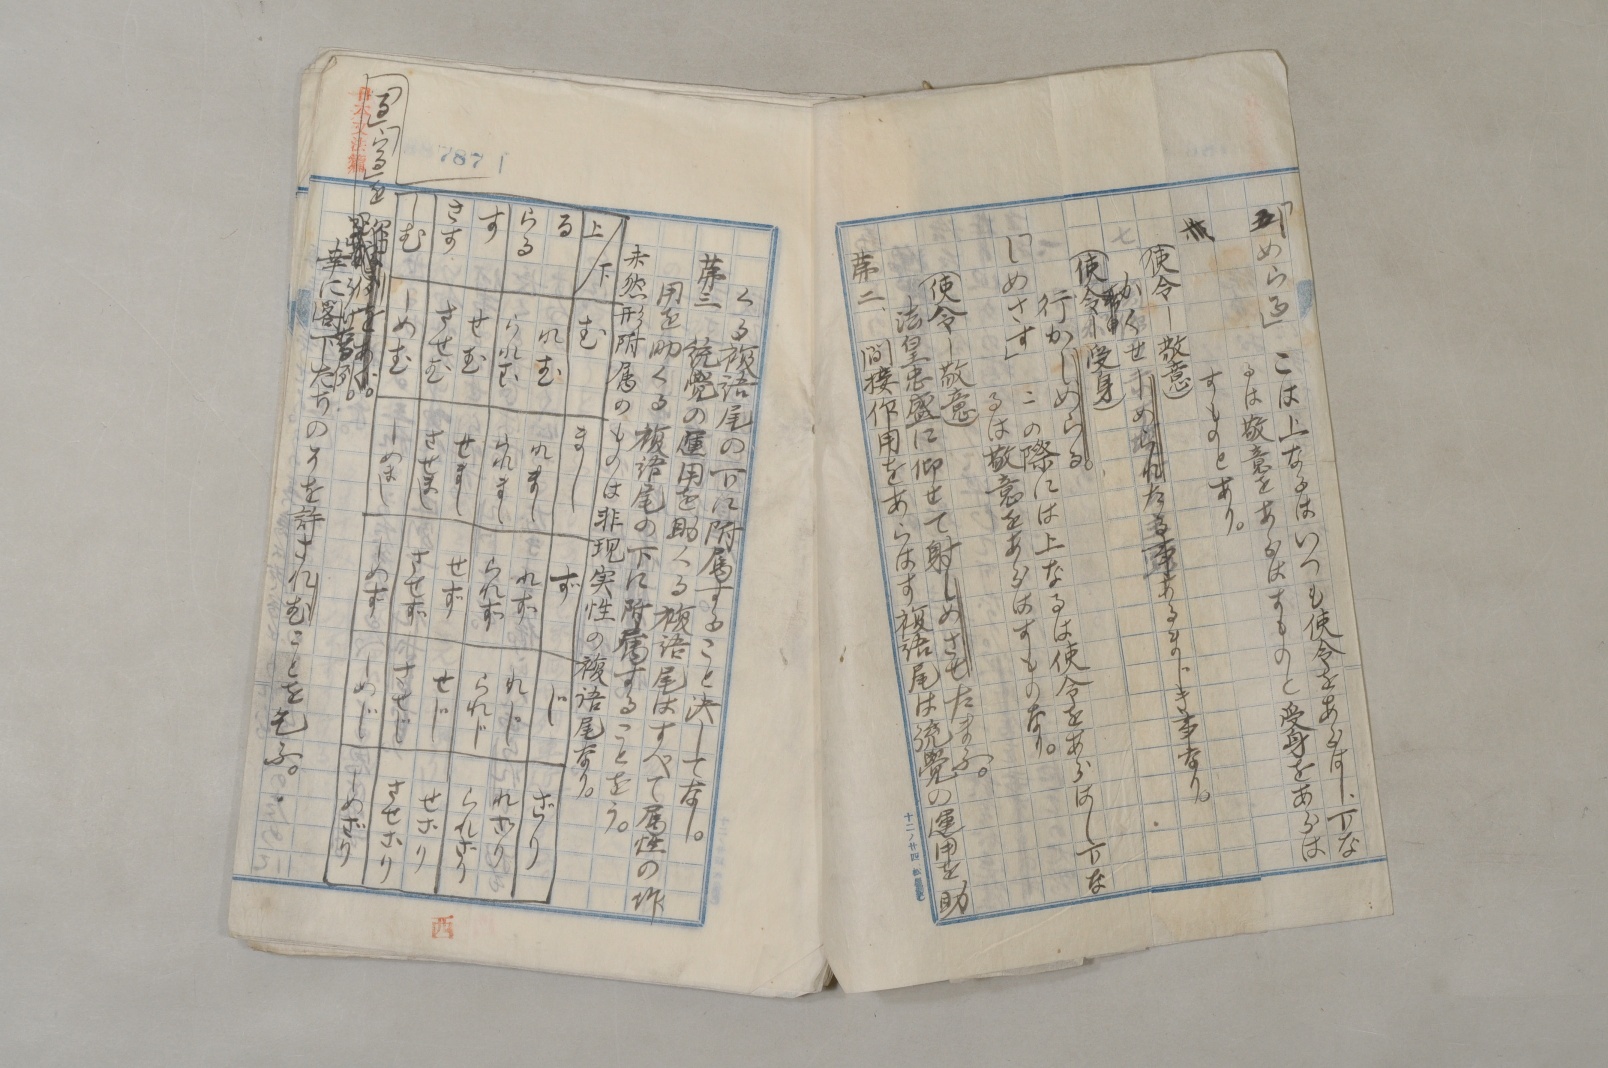 「しめらる」 こは上なるはいつも使令をあらはし、下な
るは敬意をあらはすものと受身をあらは
すものとあり。
(使令―敬意)
かくせしめられたる事あるまじき事なり。
(使令―受身)
行かしめらる。
「しめさす」 この際には上なるは使令をあらはし下な
るは敬意をあらはすものなり。
(使令―敬意)
法皇忠盛に仰せて射しめさせたまふ。
第二、間接作用をあらはす複語尾は統覺の運用を助
くる複語尾の下に附屬すること決してなし。
第三 統覺の運用を助くる複語尾はすべて属性の作
用を助くる複語尾の下に附屬することをう。
未然形附属のものは非現実性の複語尾なり。
上/下 む まし ず じ ざり
る れむ れまし れず れじ れざり
らる られむ られまし られず られじ られざり
す せむ せまし せず せじ せざり
さす させむ させまし させず させじ させざり
しむ しめむ しめまし しめず しめじ しめざり
幸に閣下たちの
を許されむことを乞ふ。
1787
日本文法論
西